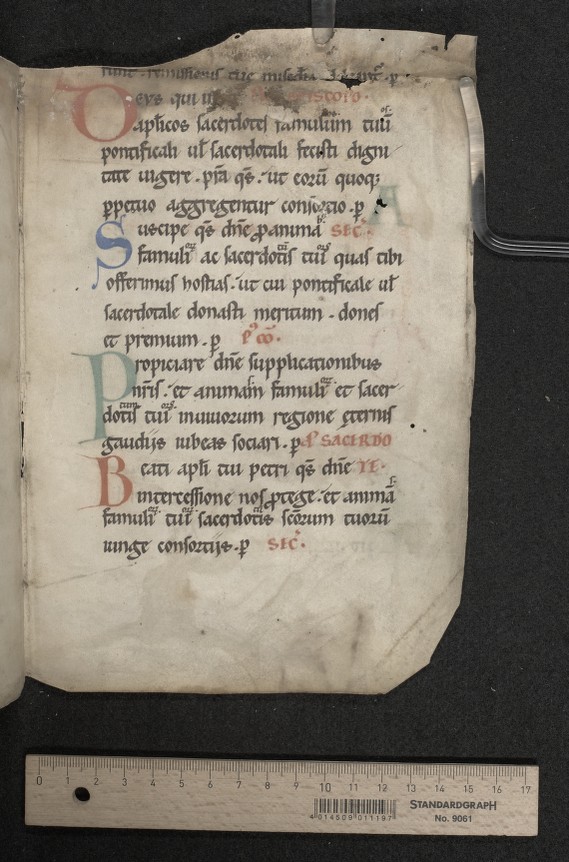 sunt. remissionis tue misc̄dia
Deus qui int̄ ēpiscopo.
aplīcos sacerdotes famulum tuū
pontificali ul̄ sacerdotali fecisti digni
tate uigere. p̄sta q̄s. ut eorū quoq;
ꝑpetuo aggregentur consortio. ꝑ
Suscipe q̄s dn̄e ꝓ anima SEC̄.
famuli ac sacerdotis tui quas tibi
offerimus hostias. ut cui pontificale ul̄
sacerdotale donasti meritum. dones
et premium. ꝑ P' CŌ.
Propiciare dn̄e supplicationibus
nr̄is. et animam famuli et sacer
dotis tui in uiuorum regione ęternis
gaudiis iubeas sociari. ꝑ P' SACERDO
Beati apl̄i tui petri q̄s dn̄e TE.
intercessione nos ꝓtege. et animā
famuli tui sacerdotis sc̄orum tuorū
iunge consortiis. ꝑ SEC̄.
0 1 2 3 4 5 6 7 8 9 10 11 12 13 14 15 16 17
4 014509 011197
STANDARDGRAPH
No. 9061